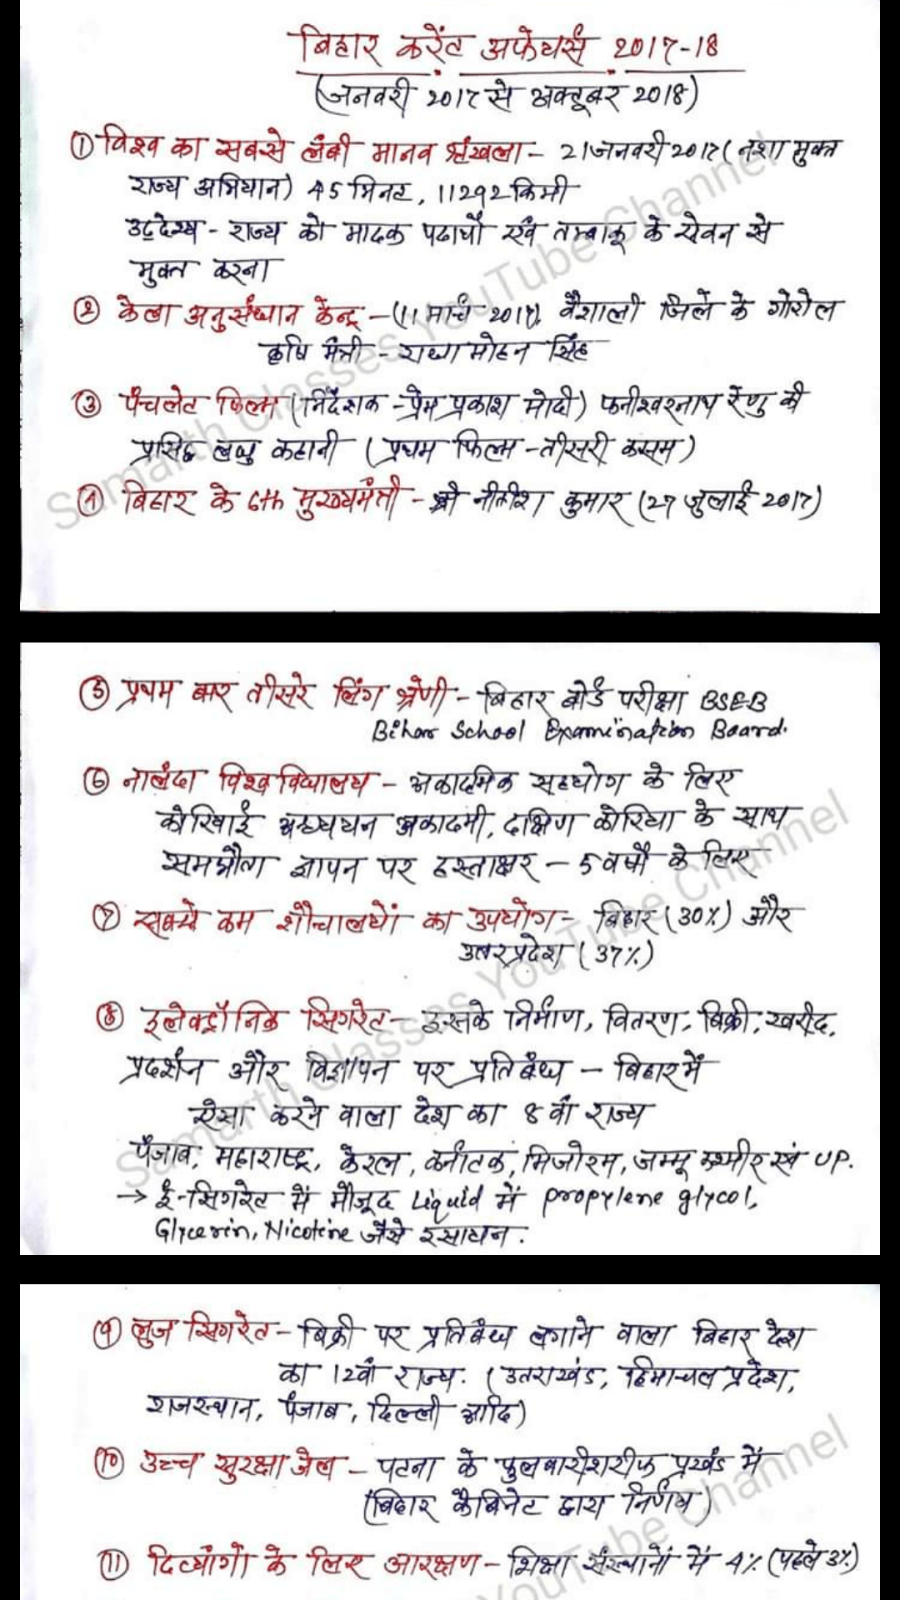 बिहार करेंट अफेयर्स 2017-18
(जनवरी 2017 से अक्टूबर 2018)
① विश्व का सबसे लंबी मानव श्रृंखला - 21 जनवरी 2017 ( नशा मुक्त
राज्य अभियान) 45 मिनट, 11292 किमी
उद्देश्य - राज्य को मादक पदार्थों एवं तम्बाकू के सेवन से
मुक्त करना
② केला अनुसंधान केन्द्र - (11 मार्च 2017), वैशाली जिले के गोरौल
कृषि मंत्री - राधा मोहन सिंह
③ पंचलेट फिल्म (निर्देशक - प्रेम प्रकाश मोदी) फनीश्वरनाथ रेणु की
प्रसिद्ध लघु कहानी (प्रथम फिल्म - तीसरी कसम)
④ बिहार के 6th मुख्यमंत्री - श्री नीतीश कुमार (27 जुलाई 2017)
⑤ प्रथम बार तीसरे लिंग श्रेणी - बिहार बोर्ड परीक्षा BSEB
Bihar School Examination Board.
⑥ नालंदा विश्वविद्यालय - अकादमिक सहयोग के लिए
कोरियाई अध्ययन अकादमी, दक्षिण कोरिया के साथ
समझौता ज्ञापन पर हस्ताक्षर - 5 वर्षों के लिए
⑦ सबसे कम शौचालयों का उपयोग - बिहार (30%) और
उत्तरप्रदेश (37%)
⑧ इलेक्ट्रॉनिक सिगरेट - इसके निर्माण, वितरण, बिक्री, खरीद,
प्रदर्शन और विज्ञापन पर प्रतिबंध - बिहार में
ऐसा करने वाला देश का 8 वां राज्य
पंजाब, महाराष्ट्र, केरल, कर्नाटक, मिजोरम, जम्मू कश्मीर एवं UP.
→ ई-सिगरेट में मौजूद Liquid में propylene glycol,
Glycerin, Nicotine जैसे रसायन.
⑨ लुज सिगरेट - बिक्री पर प्रतिबंध लगाने वाला बिहार देश
का 12वां राज्य. (उतराखंड, हिमाचल प्रदेश,
राजस्थान, पंजाब, दिल्ली आदि)
⑩ उच्च सुरक्षा जेल - पटना के फुलवारीशरीफ प्रखंड में
(बिहार कैबिनेट द्वारा निर्णय)
⑪ दिव्यांगों के लिए आरक्षण - शिक्षा संस्थानों में 4% (पहले 3%)
Samarth Classes YouTube Channel
Samarth Classes YouTube Channel
YouTube Channel